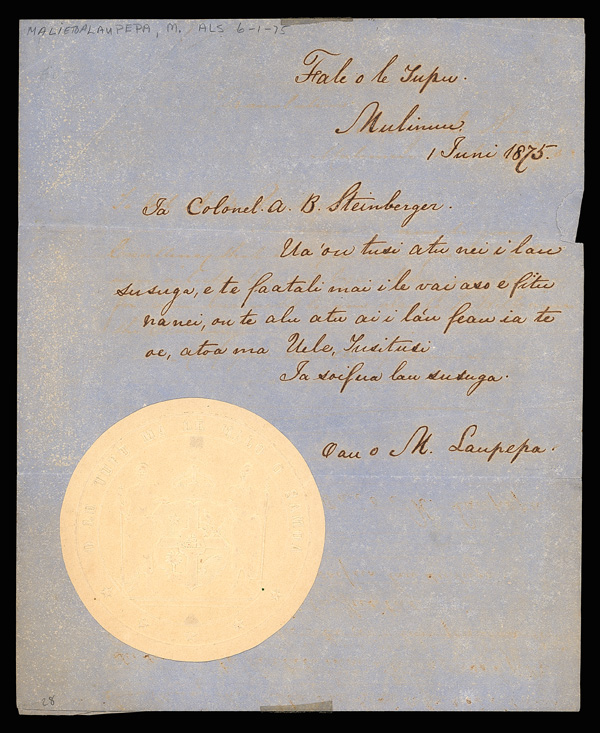 MALIETOA LAUPEPA, M. ALS 6-1-75
Fale o le Tupu.
Mulinuu.
1 Iuni 1875.
Ia Colonel. A. B. Steinberger.
Ua ou tusi atu nei i lau
susuga, e te faatali mai i le vai aso e fitu
na nei, ou te alu atu ai i la'u feau ia te
oe, atoa ma Uele, Tusitusi
Ia soifua lau susuga.
O au o M. Laupepa.
28